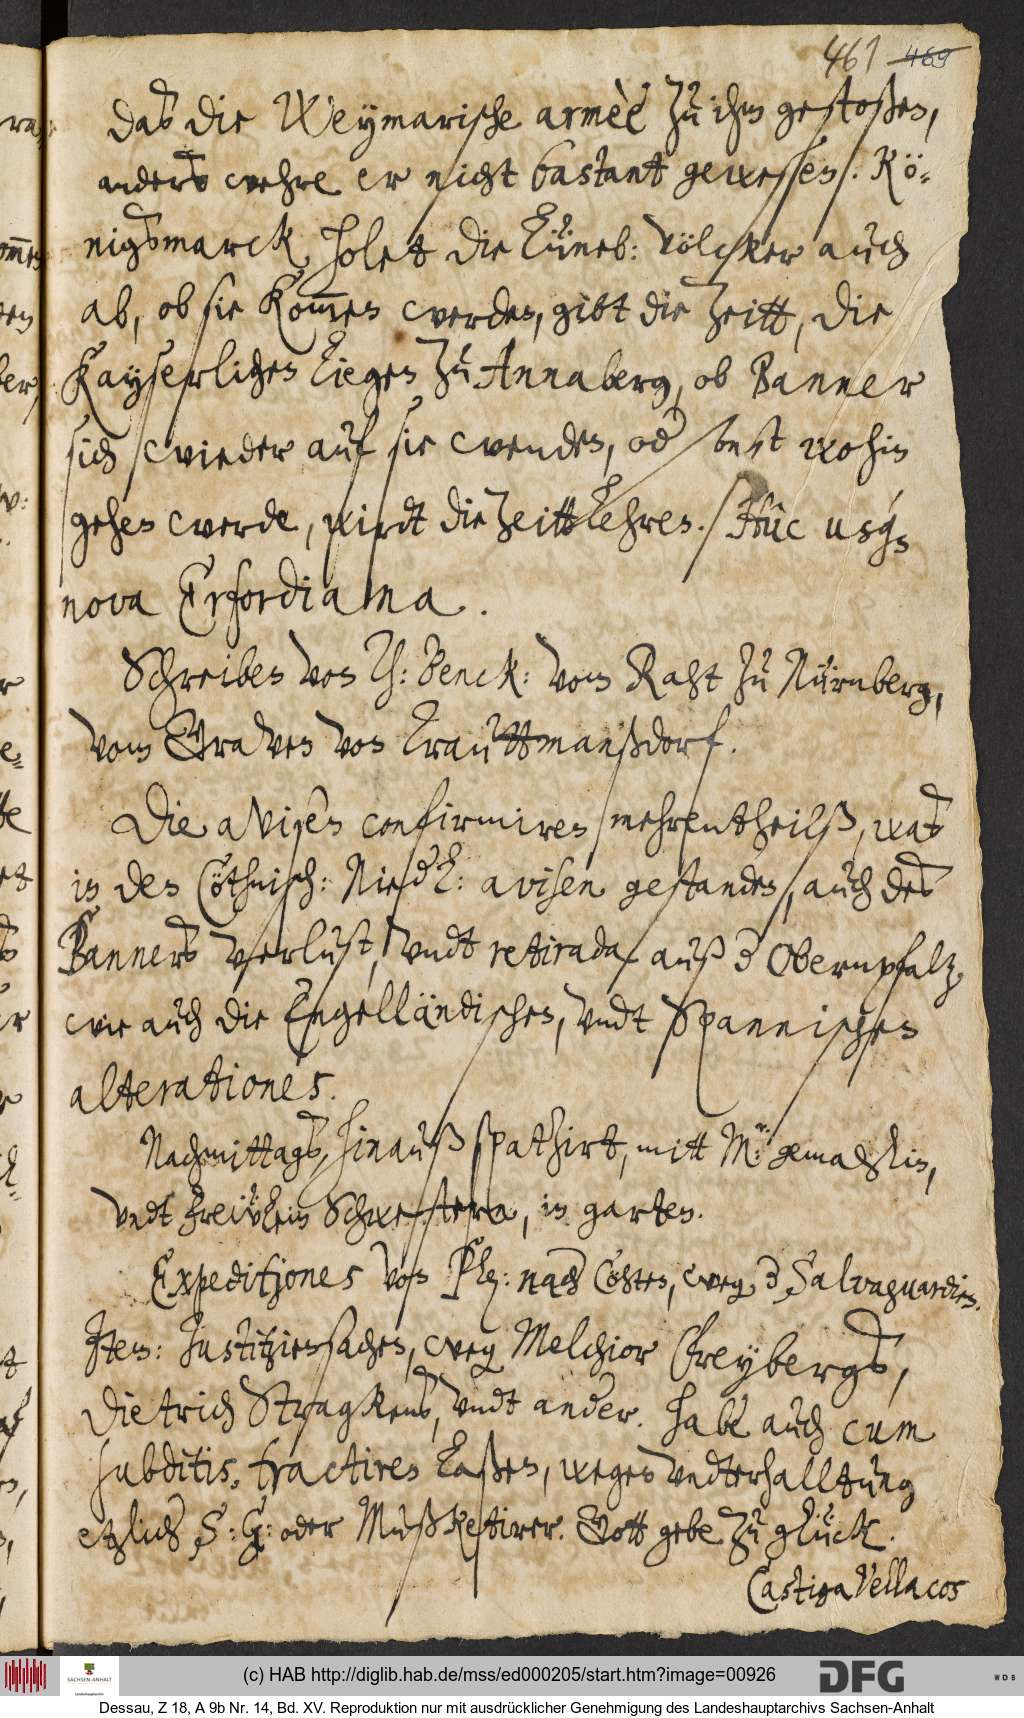 461 469
daß die Weymarische armèè zu ihm gestoßen,
anders wehre er nicht bastant gewesen. Kö-
nigsmarck holet die Lüneb: völcker auch
ab, ob sie kom̅en werden, gibt die zeitt, die
Kayserlichen liegen zu Annaberg, ob Banner
sich wieder auf sie wenden, od sonst wohin
gehen werde, wirdt die zeitt lehren. Hûc usq́
nova Erfordiana.
Schreiben von Th: Benck: vom Raht zu Nürnberg,
vom Graven von Trauttmanßdorf.
Die avisen confirmiren mehrentheilß, waß
in den Cöthnisch: Niedl: avisen gestanden, auch des
Banners verlust, undt retirada auß d Obernpfalz,
wie auch die Engelländischen, undt Spannischen
alterationes.
Nachmittags, hinauß spatzirt, mitt M: gemahlin,
undt freülein Schwestern, in garten.
Expeditiones von Plg: nach Cöhten, weg d Salvaguardien.
Item: Justitziensachen, weg Melchior Freybergs,
Dietrich Stragkens, undt ander. habe auch cum
subditis, tractiren laßen, wegen undterhalltung
etzlich S: G: oder Mußketirer. Gott gebe zu glück.
Castiga Vellacos
(c) HAB http://diglib.hab.de/mss/ed000205/start.htm?image=00926
SACHSEN-ANHALT
DFG
WDB
Dessau, Z 18, A 9b Nr. 14, Bd. XV. Reproduktion nur mit ausdrücklicher Genehmigung des Landeshauptarchivs Sachsen-Anhalt